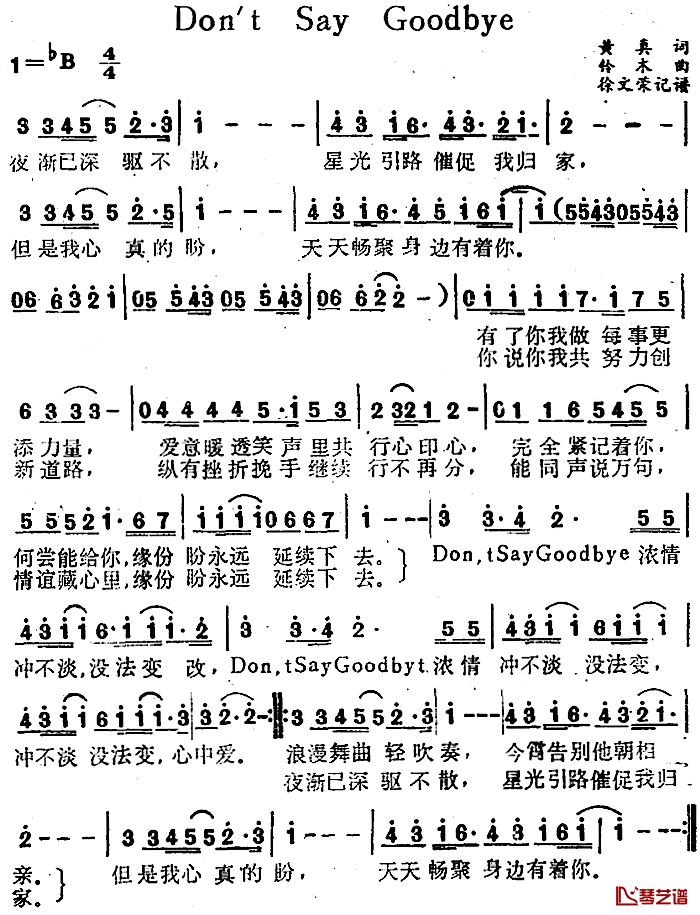 Don't Say Goodbye
1=♭B 4/4
黄真词
伶木曲
徐文荣记谱
3 3455 2·3 | 1 - - - | 43 16· 43· 21· | 2 - - - |
夜渐已深 驱不散, 星光引路 催促 我归家,
3 3455 2·5 | 1 - - - | 43 16· 45 161 | 1 (554305543 |
但是我心 真的盼, 天天畅聚身边有着你。
06 6321 | 05 5543 0543 | 06 622 - ) | 01 1117· 175 |
有了你我做 每事更
你说你我共 努力创
6 333 - | 0444 45·1 153 | 23212 - | 01 165455 |
添力量, 爱意暖透笑声里共 行心印心, 完全紧记着你,
新道路, 纵有挫折挽手继续 行不再分, 能同声说万句,
5 5521· 67 | 111110667 | 1 - - 3 | 3·4 2· 55 |
何尝能给你,缘份 盼永远 延续下去。 Don,tSayGoodbye 浓情
情谊藏心里,缘份 盼永远 延续下去。
431161·11·2 | 3 3·4 2· 55 | 431161111 |
冲不淡,没法变 改, Don,tSayGoodbyt 浓情 冲不淡 没法变,
431161111·3 | 32·2- :||: 3 3455 2·3 | 1 - - - | 43 16· 4321· |
冲不淡 没法变,心中爱。 浪漫舞曲 轻吹奏, 今宵告别他朝相
夜渐已深 驱不散, 星光引路催促我归
2 - - - | 3 3455 2·3 | 1 - - - | 43 16· 43 161 | 1 - - - :||
亲。 但是我心 真的盼, 天天畅聚 身边有着你。
家。
琴艺谱